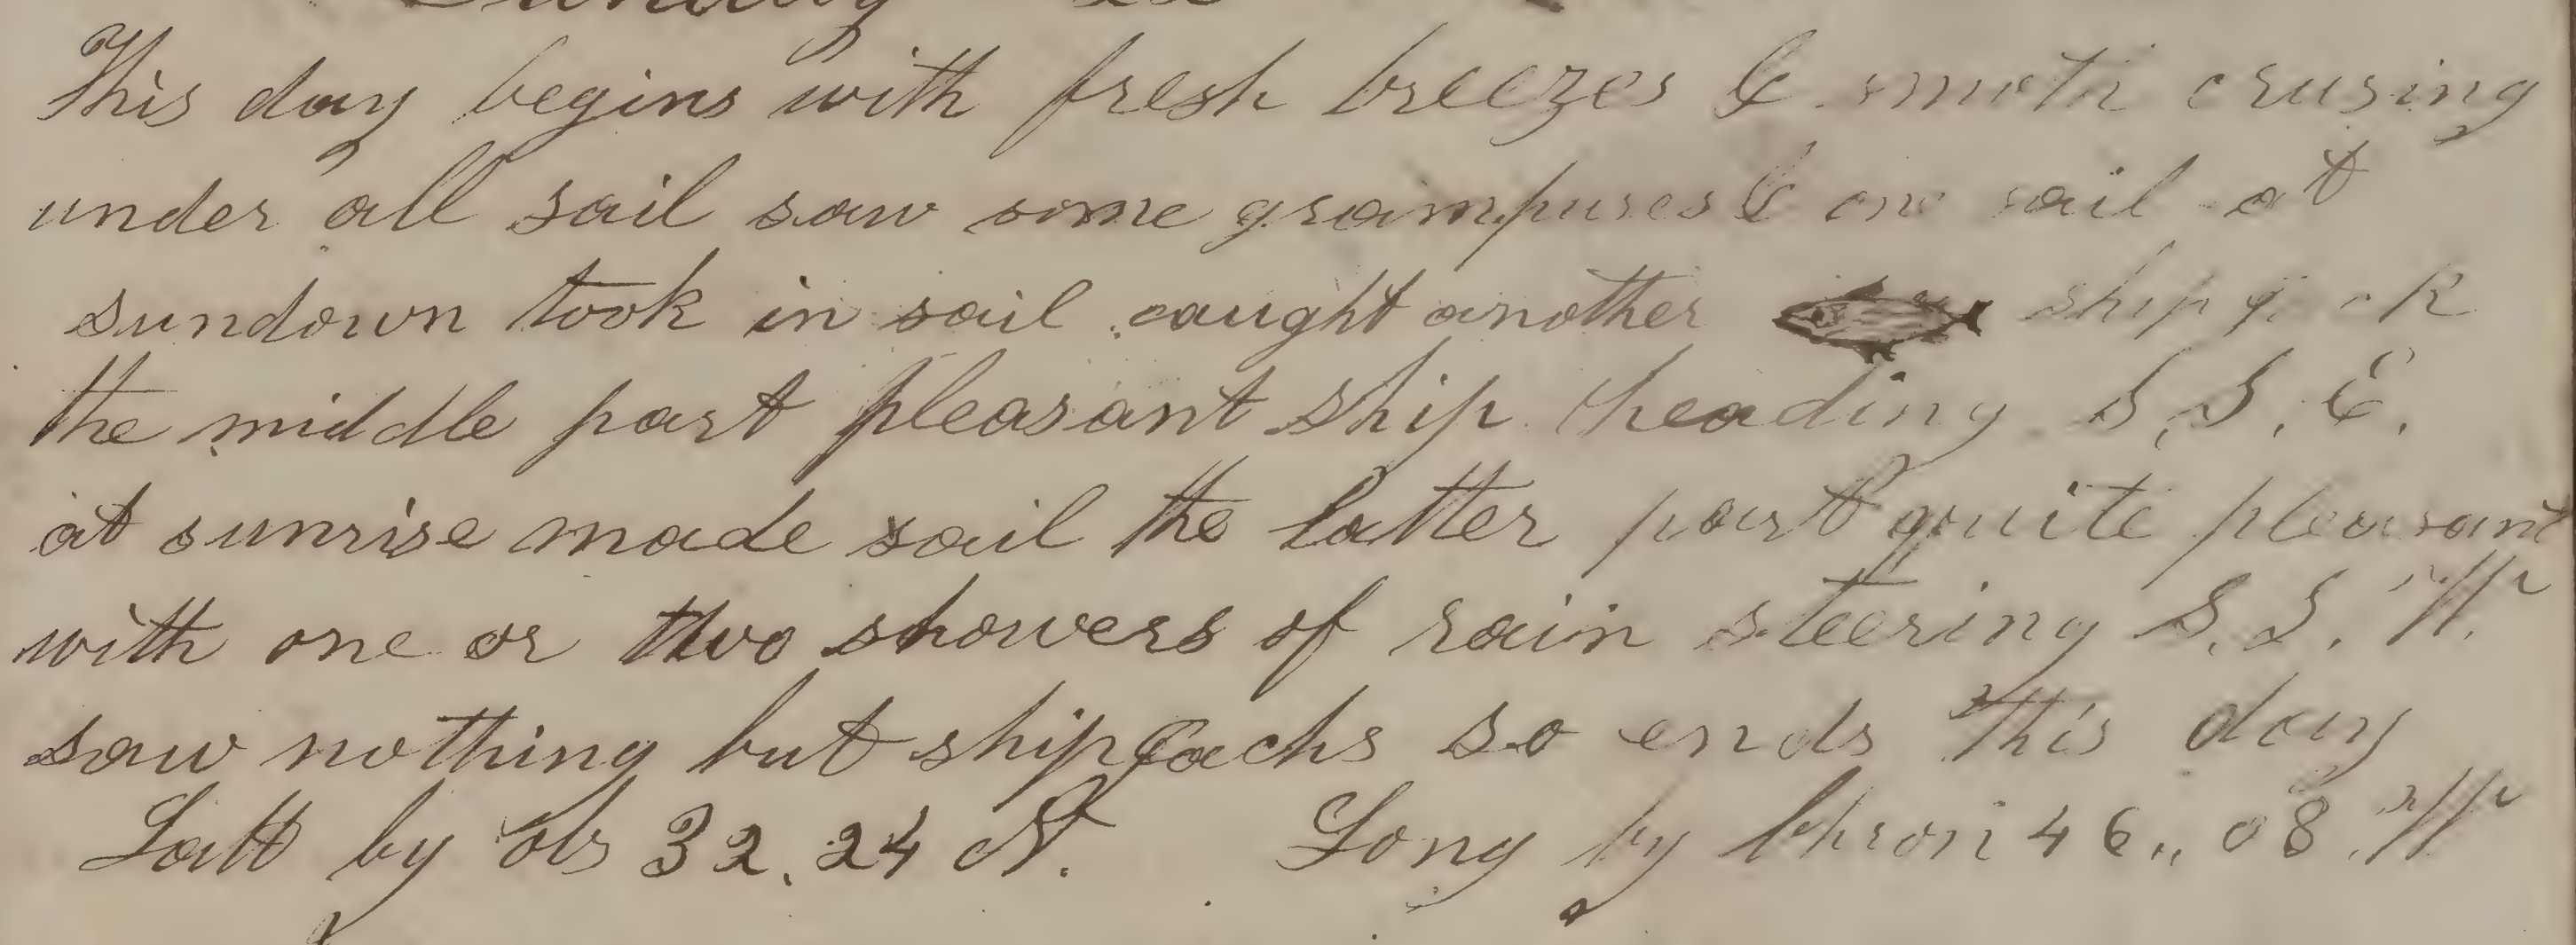 Sunday 22
This day begins with fresh breezes & smoth crusing
under all sail saw some grampuses & one sail at
sundown took in sail caught another ship jack
the middle part pleasant ship heading S. S. E.
at sunrise made sail the latter part quite pleasant
with one or two showers of rain steering S. S. W.
saw nothing but ship jacks so ends this day
Latt by obs 32. 24 N. Long by Chron 46,, 08. W